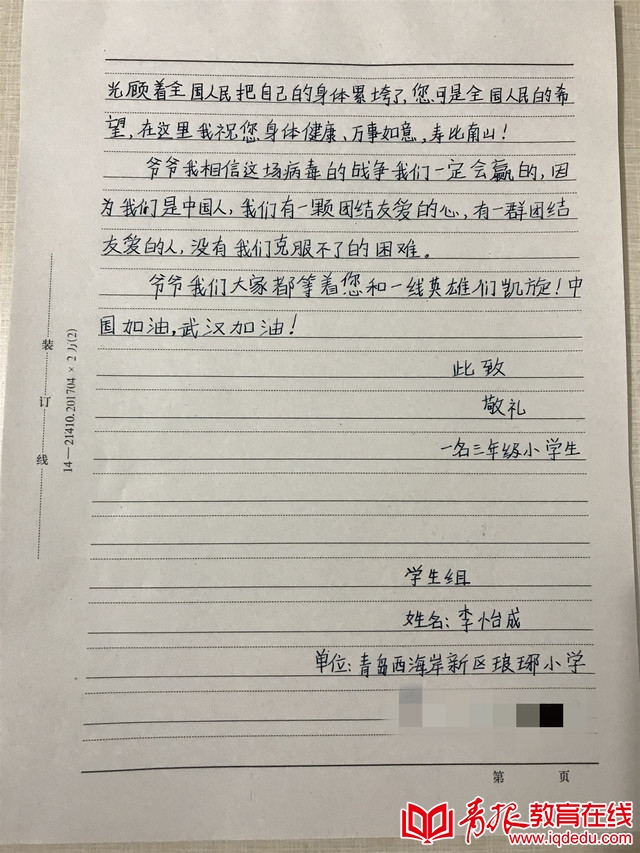 光顾着全国人民把自己的身体累垮了,您可是全国人民的希
望,在这里我祝您身体健康、万事如意,寿比南山!
爷爷我相信这场病毒的战争我们一定会赢的,因
为我们是中国人,我们有一颗团结友爱的心,有一群团结
友爱的人,没有我们克服不了的困难。
爷爷我们大家都等着您和一线英雄们凯旋!中
国加油,武汉加油!
此致
敬礼
一名三年级小学生
学生组
姓名:李怡成
单位:青岛西海岸新区琅琊小学
第 页
装
订
线
14—21410.201704×2万(2)
青报教育在线
www.iqdedu.com